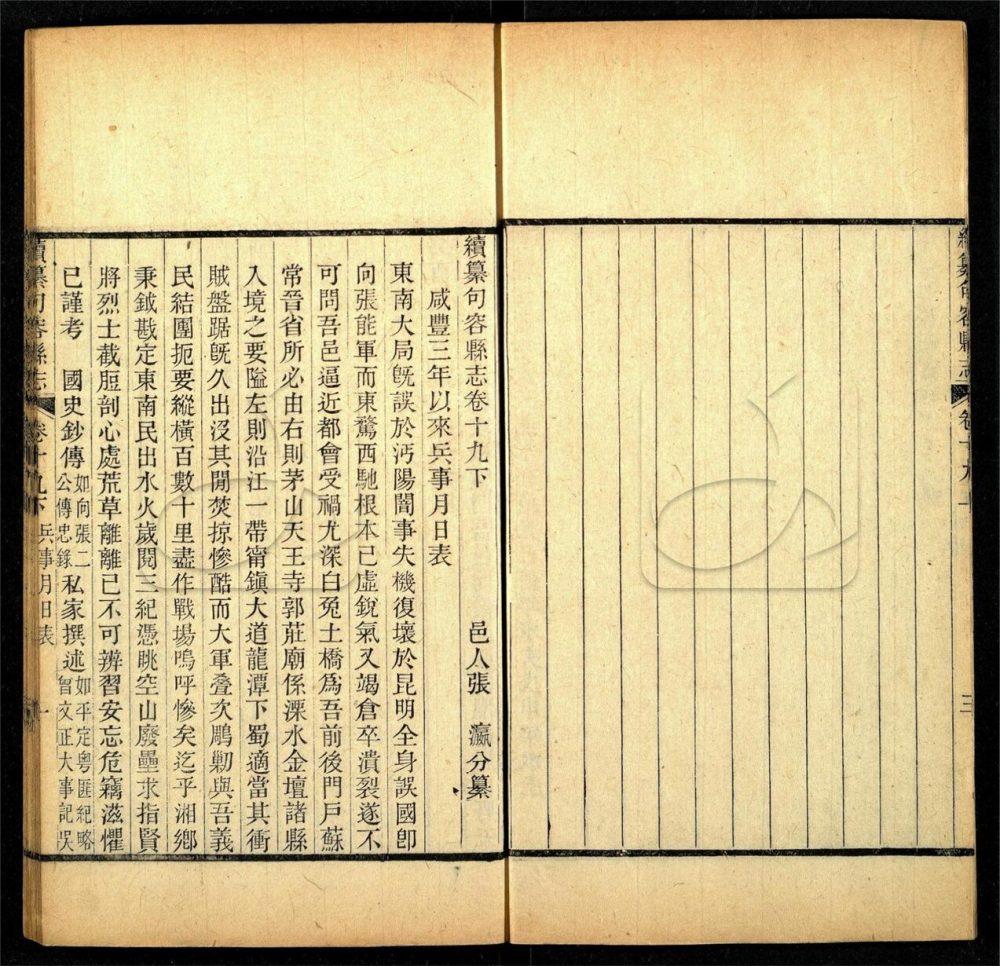 續纂句容縣志 卷十九下 三
續纂句容縣志卷十九下 邑人張 瀛分纂
咸豐三年以來兵事月日表
東南大局旣誤於沔陽闇事失機復壞於昆明全身誤國卽
向張能軍而東騖西馳根本已虛銳氣又竭倉卒潰裂遂不
可問吾邑逼近都會受禍尤深白兔土橋爲吾前後門戶蘇
常晉省所必由右則茅山天王寺郭莊廟係溧水金壇諸縣
入境之要隘左則沿江一帶甯鎭大道龍潭下蜀適當其衝
賊盤踞旣久出沒其閒焚掠慘酷而大軍疊次鵰勦與吾義
民結團扼要縱橫百數十里盡作戰場嗚呼慘矣迄乎湘鄉
秉鉞戡定東南民出水火歲閱三紀憑眺空山廢壘求指賢
將烈士截脰剖心處荒草離離已不可辨習安忘危竊滋懼
已謹考 國史鈔傳如向張二公傳忠錄私家撰述如平定粵匪紀略曾文正大事記
續纂句容縣志 卷十九下 兵事月日表 一